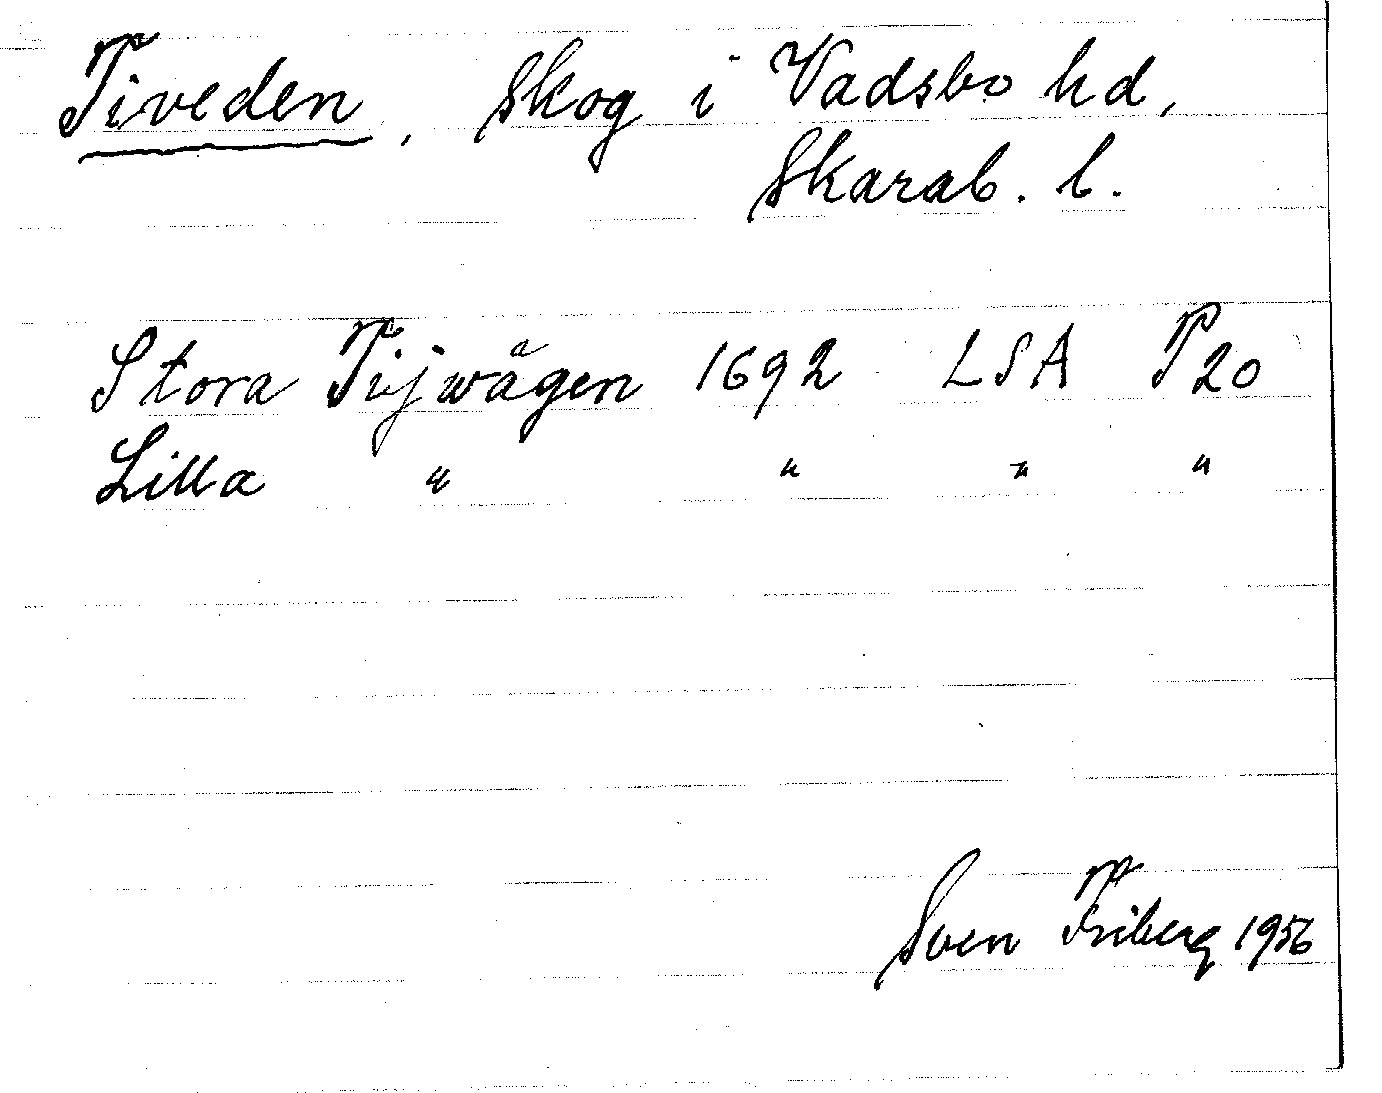 Tiveden, skog i Vadsbo hd,
Skarab. l.
Stora Tijwågen 1692 LSA P20
Lilla " " " "
Sven Friberg 1956